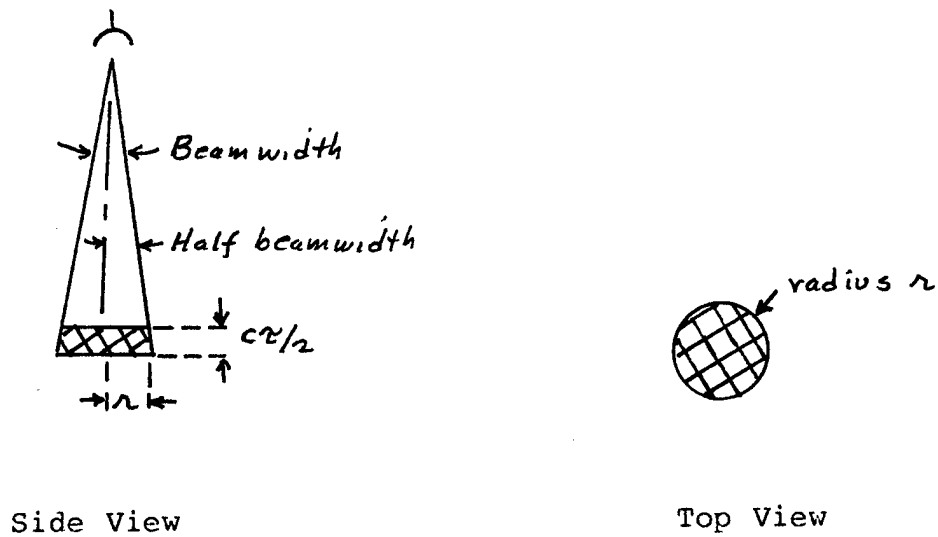 Beamwidth
Half beamwidth
cτ/2
r
radius r
Side View
Top View